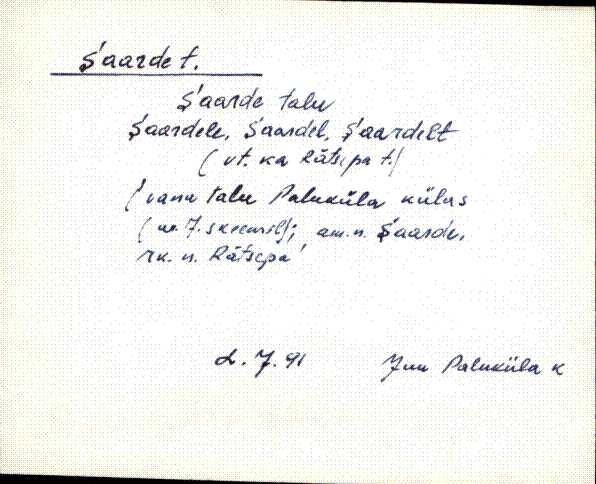 Ş'aarde t.
Ş'aarde talu
Ş'aardele, Ş'aardel, Ş'aardelt
(vt. ka Rätsepa t.)
'vana talu Paluküla külas
(nr. 7. skeemil); am.n. Ş'aarde,
rk. n. Rätsepa'
L. 7. 91 Juu Paluküla k